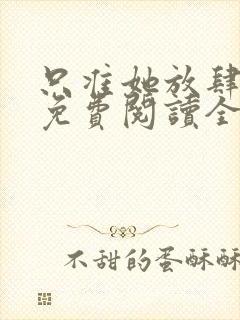 只准她放肆
免費閱讀全
不甜的蛋酥酥